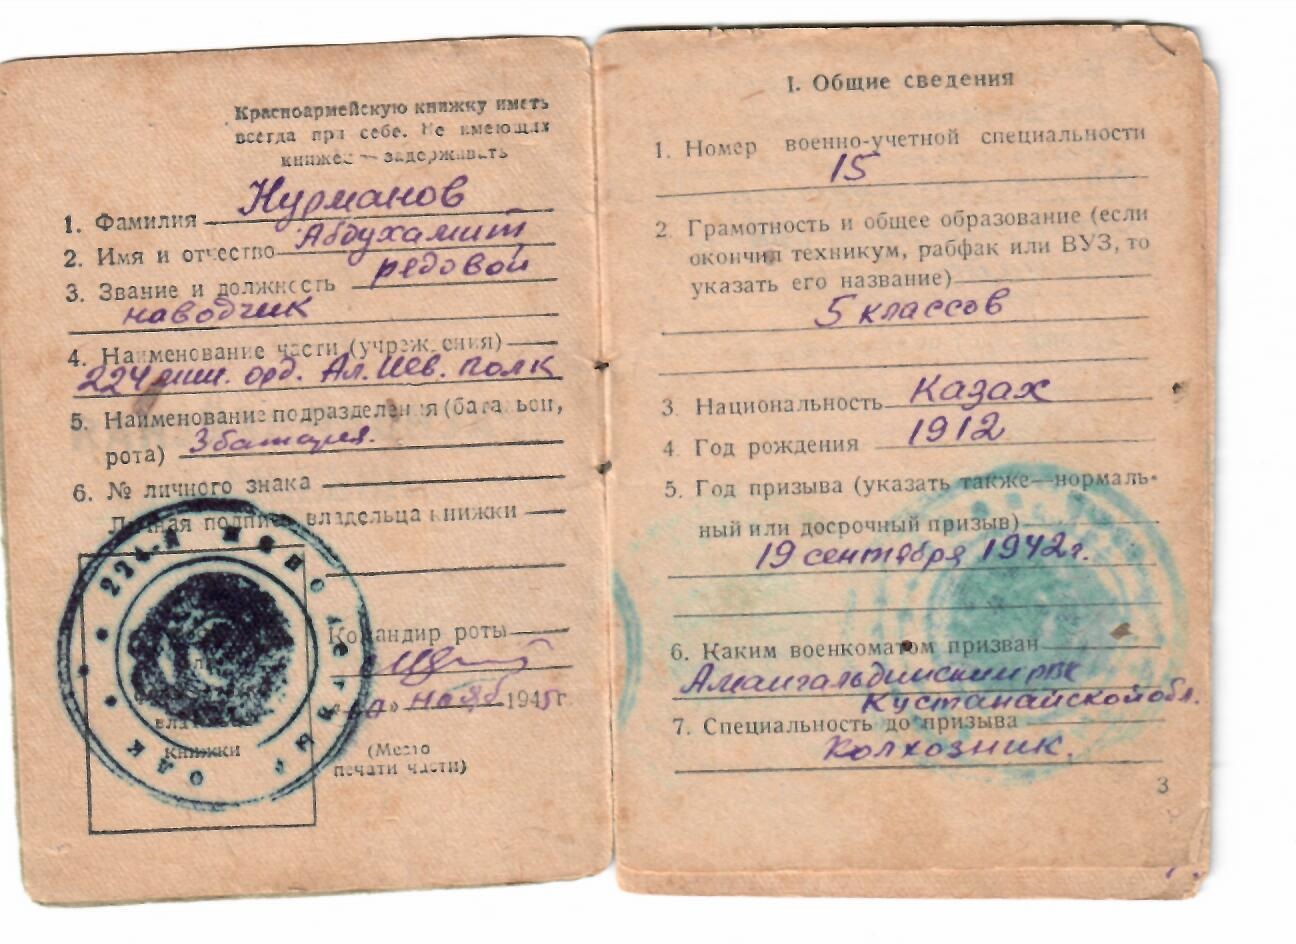 Красноармейскую книжку иметь
всегда при себе. Не имеющих
книжек — задерживать
1. Фамилия Нурманов
2. Имя и отчество Абдухамит
3. Звание и должность рядовой
наводчик
4. Наименование части (учреждения)
224 мин. орд. Ал. Нев. полк
5. Наименование подразделения (батальон,
рота) 3 батарея.
6. № личного знака
Личная подпись владельца книжки
Командир роты
нояб 1945 г.
владельца
книжки
(Место
печати части)
224-й МИНОМЕТНЫЙ ПОЛК
I. Общие сведения
1. Номер военно-учетной специальности
15
2. Грамотность и общее образование (если
окончил техникум, рабфак или ВУЗ, то
указать его название)
5 классов
3. Национальность Казах
4 Год рождения 1912
5. Год призыва (указать также—нормаль-
ный или досрочный призыв)
19 сентября 1942 г.
6. Каким военкоматом призван
Амангальдинским рвк
Кустанайской обл.
7. Специальность до призыва
Колхозник.
3